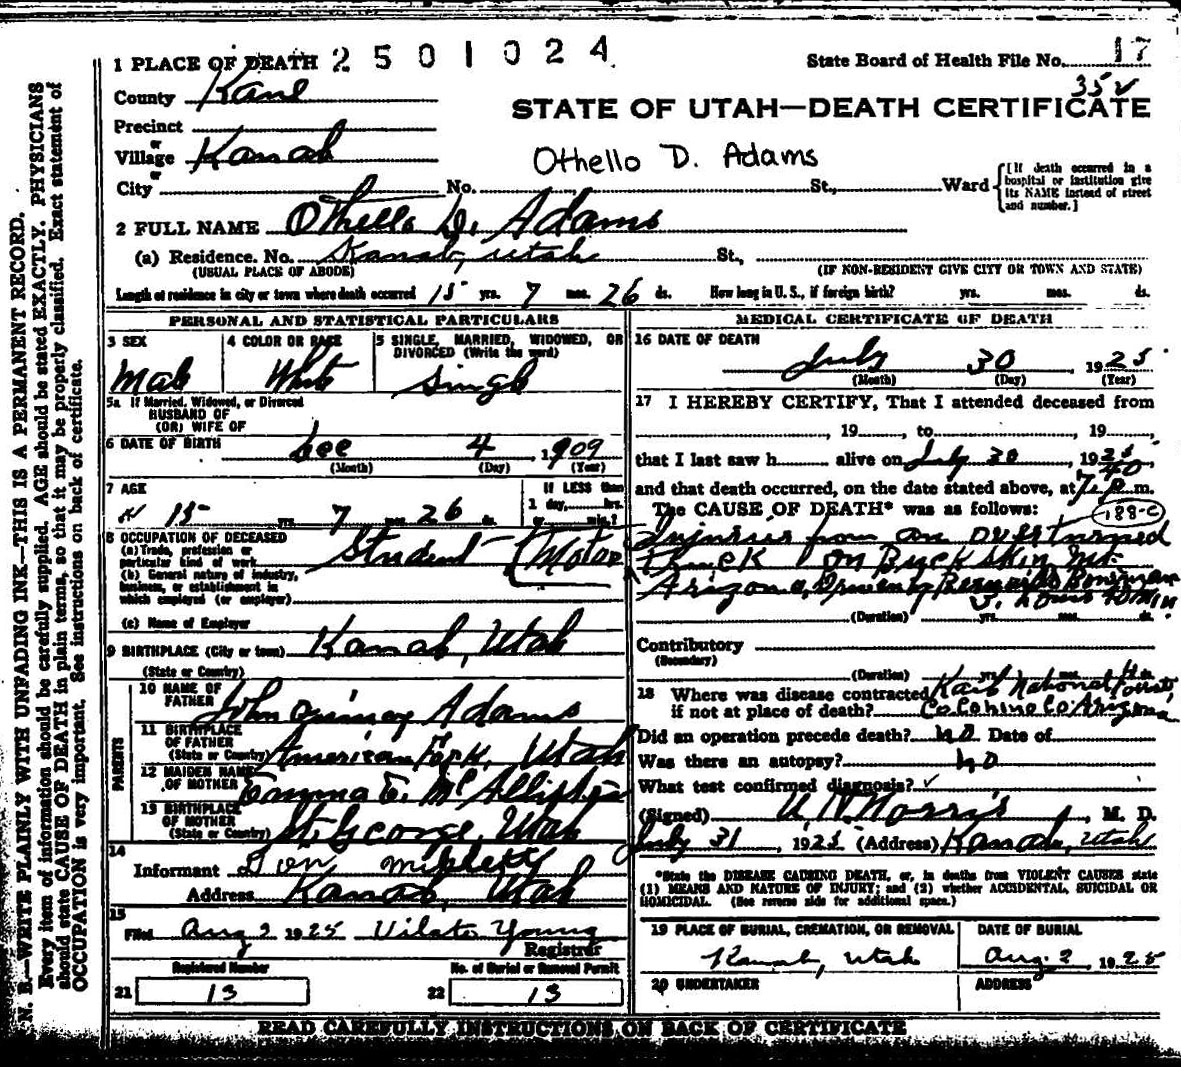 1 PLACE OF DEATH 2501024
State Board of Health File No. 17
35 v
County Kane
STATE OF UTAH—DEATH CERTIFICATE
Precinct
or
Village Kanab
or
Othello D. Adams
City No. St., Ward
[If death occurred in a hospital or institution give its NAME instead of street and number.]
2 FULL NAME Othello D. Adams
(a) Residence. No. Kanab, Utah St.,
(USUAL PLACE OF ABODE) (IF NON-RESIDENT GIVE CITY OR TOWN AND STATE)
Length of residence in city or town where death occurred 15 yrs. 7 mos. 26 ds. How long in U. S., if foreign birth? yrs. mos. ds.
PERSONAL AND STATISTICAL PARTICULARS
3 SEX
Male
4 COLOR OR RACE
White
5 SINGLE, MARRIED, WIDOWED, OR DIVORCED (Write the word)
Single
5a If Married, Widowed, or Divorced
HUSBAND OF
(OR) WIFE OF
6 DATE OF BIRTH Dec 4, 1909
(Month) (Day) (Year)
7 AGE
15 yrs. 7 mos. 26 ds.
If LESS than
1 day, hrs.
or min.?
8 OCCUPATION OF DECEASED
(a) Trade, profession or
particular kind of work Student (Motor
(b) General nature of industry,
business, or establishment in
which employed (or employer)
(c) Name of Employer
9 BIRTHPLACE (City or town) Kanab, Utah
(State or Country)
PARENTS
10 NAME OF
FATHER John Quincy Adams
11 BIRTHPLACE
OF FATHER
(State or Country) American Fork, Utah
12 MAIDEN NAME
OF MOTHER Emma E. McAllister
13 BIRTHPLACE
OF MOTHER
(State or Country) St. George, Utah
14
Informant Don
Address Kanab, Utah
15
Filed Aug 2 1925 Vilate Young
Registrar
Registered Number No. of Burial or Removal Permit
21 13 22 13
MEDICAL CERTIFICATE OF DEATH
16 DATE OF DEATH
July 30 1925
(Month) (Day) (Year)
17 I HEREBY CERTIFY, That I attended deceased from
, 19 , to , 19
that I last saw h alive on July 30, 1925
and that death occurred, on the date stated above, at 7:40 p.m.
The CAUSE OF DEATH* was as follows: 188-c
Injuries from an overturned
Truck on Buckskin Mt.
Arizona, Driven by
5 hours 40 min
(Duration) yrs. mos. ds.
Contributory
(Secondary)
(Duration) yrs. mos. ds.
18 Where was disease contracted
if not at place of death? Kaib National Forest,
Coconino Co Arizona
Did an operation precede death? no Date of
Was there an autopsy? no
What test confirmed diagnosis? ✓
(Signed) U. N. Norris, M. D.
July 31, 1925 (Address) Kanab, Utah
*State the DISEASE CAUSING DEATH, or, in deaths from VIOLENT CAUSES state
(1) MEANS AND NATURE OF INJURY; and (2) whether ACCIDENTAL, SUICIDAL OR
HOMICIDAL. (See reverse side for additional space.)
19 PLACE OF BURIAL, CREMATION, OR REMOVAL
Kanab, Utah
DATE OF BURIAL
Aug. 2 1925
20 UNDERTAKER ADDRESS
READ CAREFULLY INSTRUCTIONS ON BACK OF CERTIFICATE
N. B.—WRITE PLAINLY WITH UNFADING INK—THIS IS A PERMANENT RECORD.
Every item of information should be carefully supplied. AGE should be stated EXACTLY. PHYSICIANS
should state CAUSE OF DEATH in plain terms, so that it may be properly classified. Exact statement of
OCCUPATION is very important. See instructions on back of certificate.